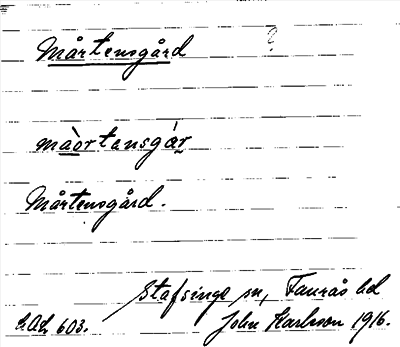 Mårtensgård ?
màortansgár
Mårtensgård.
Stafsinge sn, Faurås hd
603. John Karlsson 1916.